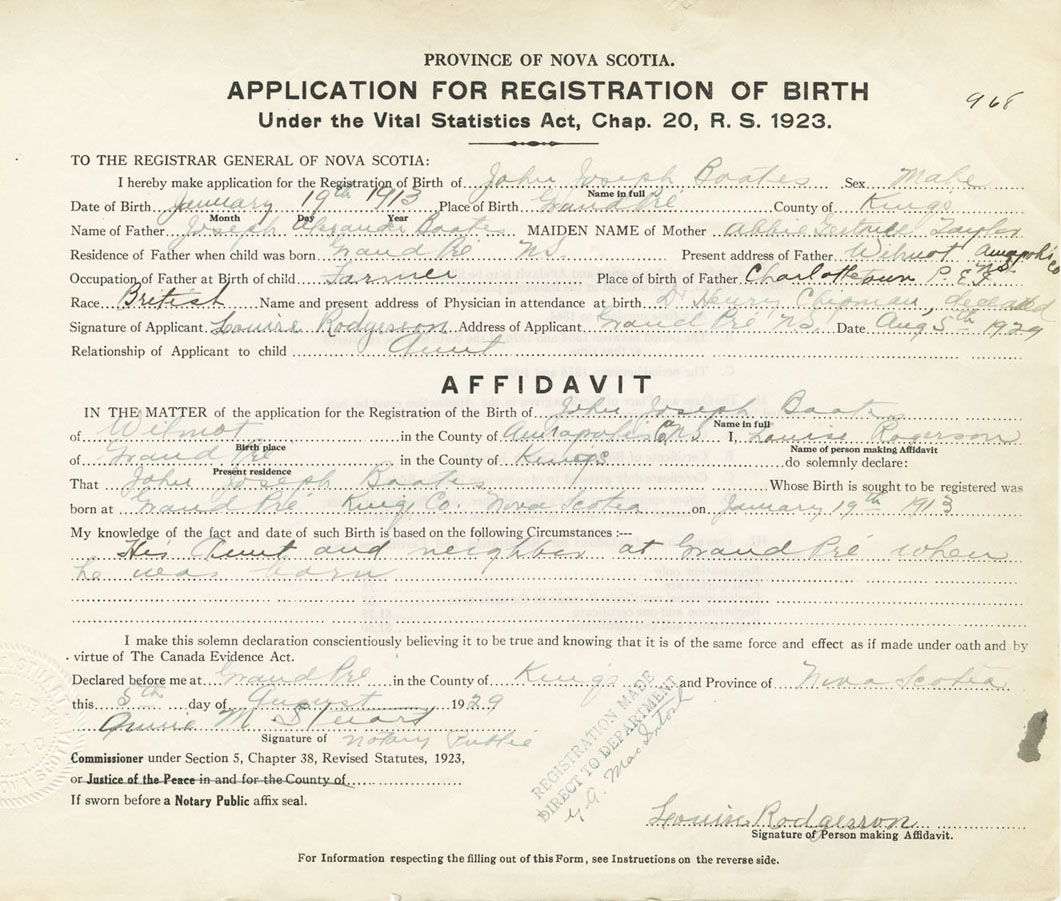 PROVINCE OF NOVA SCOTIA.
APPLICATION FOR REGISTRATION OF BIRTH
968
Under the Vital Statistics Act, Chap. 20, R. S. 1923.
TO THE REGISTRAR GENERAL OF NOVA SCOTIA:
I hereby make application for the Registration of Birth of John Joseph Boates Sex Male
Name in full
Date of Birth January 19th 1913 Place of Birth Grand Pré County of Kings
Month Day Year
Name of Father Joseph Alexander Boates MAIDEN NAME of Mother Abbie Gertrude Taylor
Residence of Father when child was born Grand Pré NS. Present address of Father Wilmot Annapolis Co NS.
Occupation of Father at Birth of child Farmer Place of birth of Father Charlottetown P. E. I.
Race British Name and present address of Physician in attendance at birth Dr Henry Chipman, deceased
Signature of Applicant Louise Rodgerson Address of Applicant Grand Pré NS. Date Aug 5th 1929
Relationship of Applicant to child Aunt
AFFIDAVIT
IN THE MATTER of the application for the Registration of the Birth of John Joseph Boates
Name in full
of Wilmot in the County of Annapolis Co NS I, Louise Rogerson
Birth place Name of person making Affidavit
of Grand Pré in the County of Kings do solemnly declare:
Present residence
That John Joseph Boates Whose Birth is sought to be registered was
born at Grand Pré Kings Co. Nova Scotia on January 19th 1913
My knowledge of the fact and date of such Birth is based on the following Circumstances :--
His Aunt and neighbor at Grand Pré when
he was born
I make this solemn declaration conscientiously believing it to be true and knowing that it is of the same force and effect as if made under oath and by
virtue of The Canada Evidence Act.
Declared before me at Grand Pré in the County of Kings and Province of Nova Scotia
this 5th day of August 1929
Annie M. Stuart
Signature of Notary Public
REGISTRATION MADE
DIRECT TO DEPARTMENT
Commissioner under Section 5, Chapter 38, Revised Statutes, 1923,
or Justice of the Peace in and for the County of
If sworn before a Notary Public affix seal.
Louise Rodgerson
Signature of Person making Affidavit.
For Information respecting the filling out of this Form, see Instructions on the reverse side.